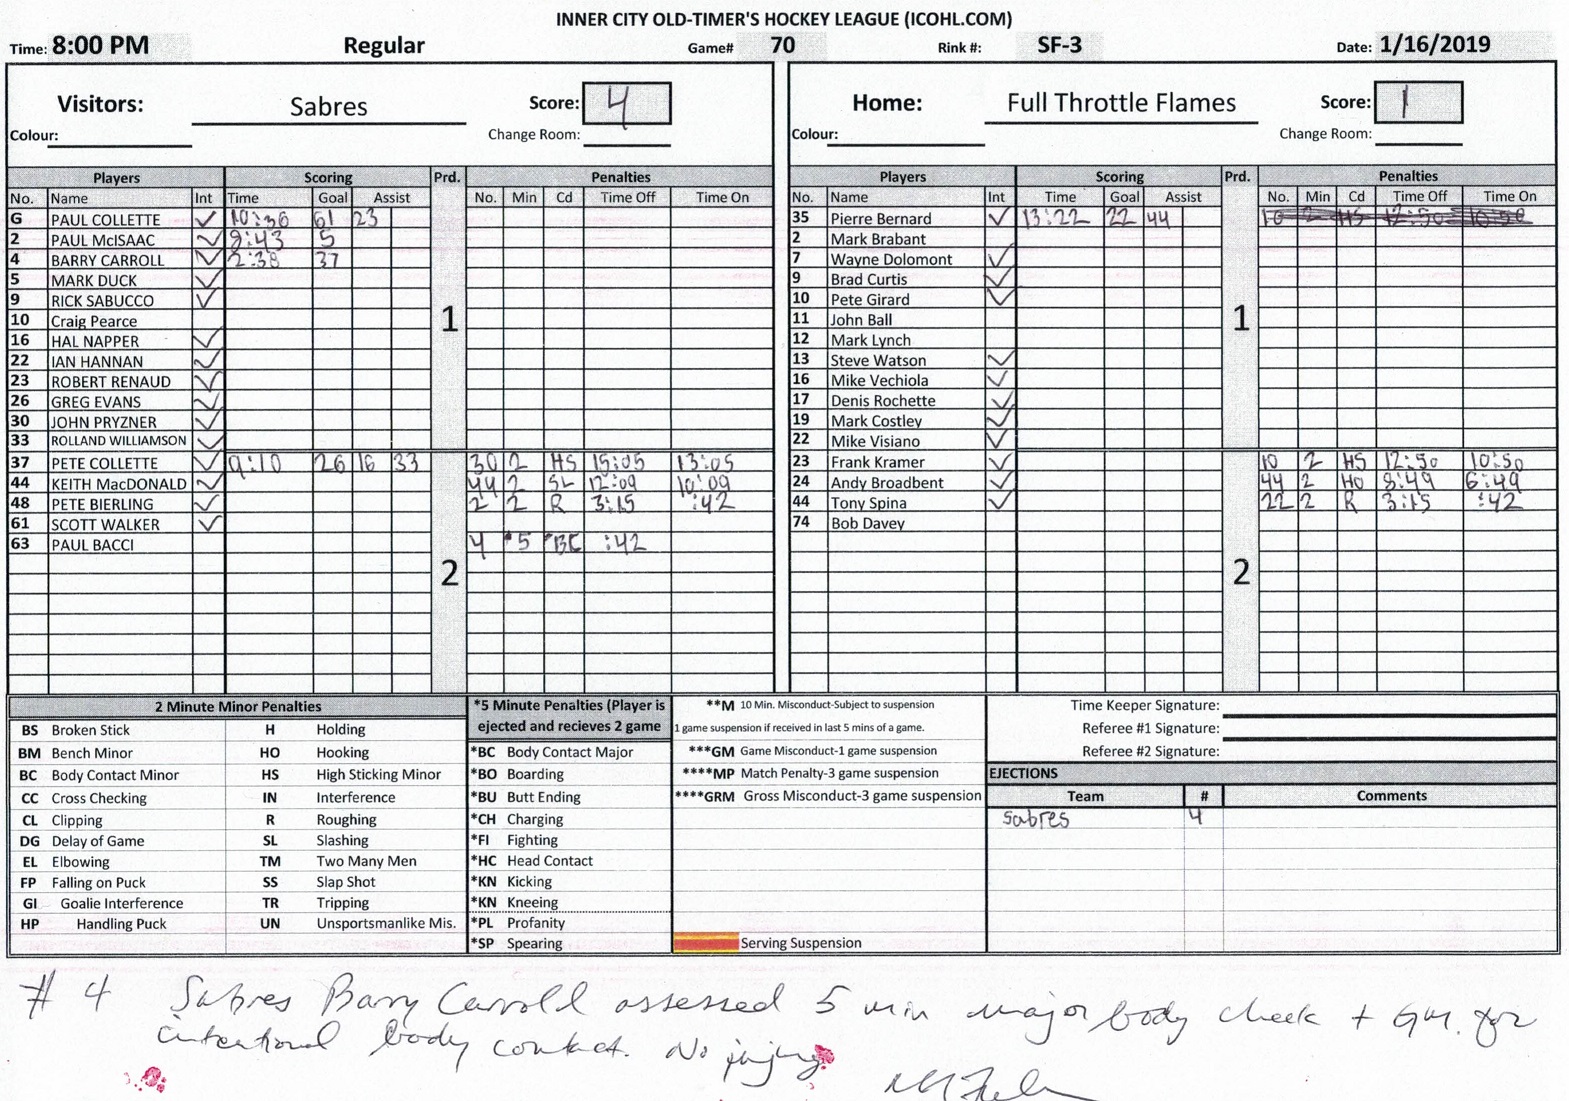 INNER CITY OLD-TIMER'S HOCKEY LEAGUE (ICOHL.COM)
Time: 8:00 PM Regular Game# 70 Rink #: SF-3 Date: 1/16/2019
Visitors: Sabres Score: 4
Colour: Change Room:
Players Scoring Prd. Penalties
No. Name Int Time Goal Assist No. Min Cd Time Off Time On
G PAUL COLLETTE ✓ 10:36 61 23
2 PAUL McISAAC ✓ 8:43 5
4 BARRY CARROLL ✓ 2:38 37
5 MARK DUCK ✓
9 RICK SABUCCO ✓
10 Craig Pearce
1
16 HAL NAPPER ✓
22 IAN HANNAN ✓
23 ROBERT RENAUD ✓
26 GREG EVANS ✓
30 JOHN PRYZNER ✓
33 ROLLAND WILLIAMSON ✓
37 PETE COLLETTE ✓ 9:10 26 16 33 30 2 HS 15:05 13:05
44 KEITH MacDONALD ✓ 44 2 SL 12:09 10:09
48 PETE BIERLING ✓ 2 2 R 3:15 :42
61 SCOTT WALKER ✓
63 PAUL BACCI 4 *5 *BC :42
2
Home: Full Throttle Flames Score: 1
Colour: Change Room:
Players Scoring Prd. Penalties
No. Name Int Time Goal Assist No. Min Cd Time Off Time On
35 Pierre Bernard ✓ 13:22 22 44 10 2 HS 12:50 10:50
2 Mark Brabant
7 Wayne Dolomont ✓
9 Brad Curtis ✓
10 Pete Girard ✓
11 John Ball
1
12 Mark Lynch
13 Steve Watson ✓
16 Mike Vechiola ✓
17 Denis Rochette ✓
19 Mark Costley ✓
22 Mike Visiano ✓
23 Frank Kramer ✓ 10 2 HS 12:50 10:50
24 Andy Broadbent ✓ 44 2 HO 8:49 6:49
44 Tony Spina ✓ 22 2 R 3:15 :42
74 Bob Davey
2
2 Minute Minor Penalties
BS Broken Stick H Holding
BM Bench Minor HO Hooking
BC Body Contact Minor HS High Sticking Minor
CC Cross Checking IN Interference
CL Clipping R Roughing
DG Delay of Game SL Slashing
EL Elbowing TM Two Many Men
FP Falling on Puck SS Slap Shot
GI Goalie Interference TR Tripping
HP Handling Puck UN Unsportsmanlike Mis.
*5 Minute Penalties (Player is
ejected and recieves 2 game
*BC Body Contact Major
*BO Boarding
*BU Butt Ending
*CH Charging
*FI Fighting
*HC Head Contact
*KN Kicking
*KN Kneeing
*PL Profanity
*SP Spearing
**M 10 Min. Misconduct-Subject to suspension
1 game suspension if received in last 5 mins of a game.
***GM Game Misconduct-1 game suspension
****MP Match Penalty-3 game suspension
****GRM Gross Misconduct-3 game suspension
Serving Suspension
Time Keeper Signature:
Referee #1 Signature:
Referee #2 Signature:
EJECTIONS
Team # Comments
Sabres 4
# 4 Sabres Barry Carroll assessed 5 min major body check + GM. for
intentional body contact. No injury